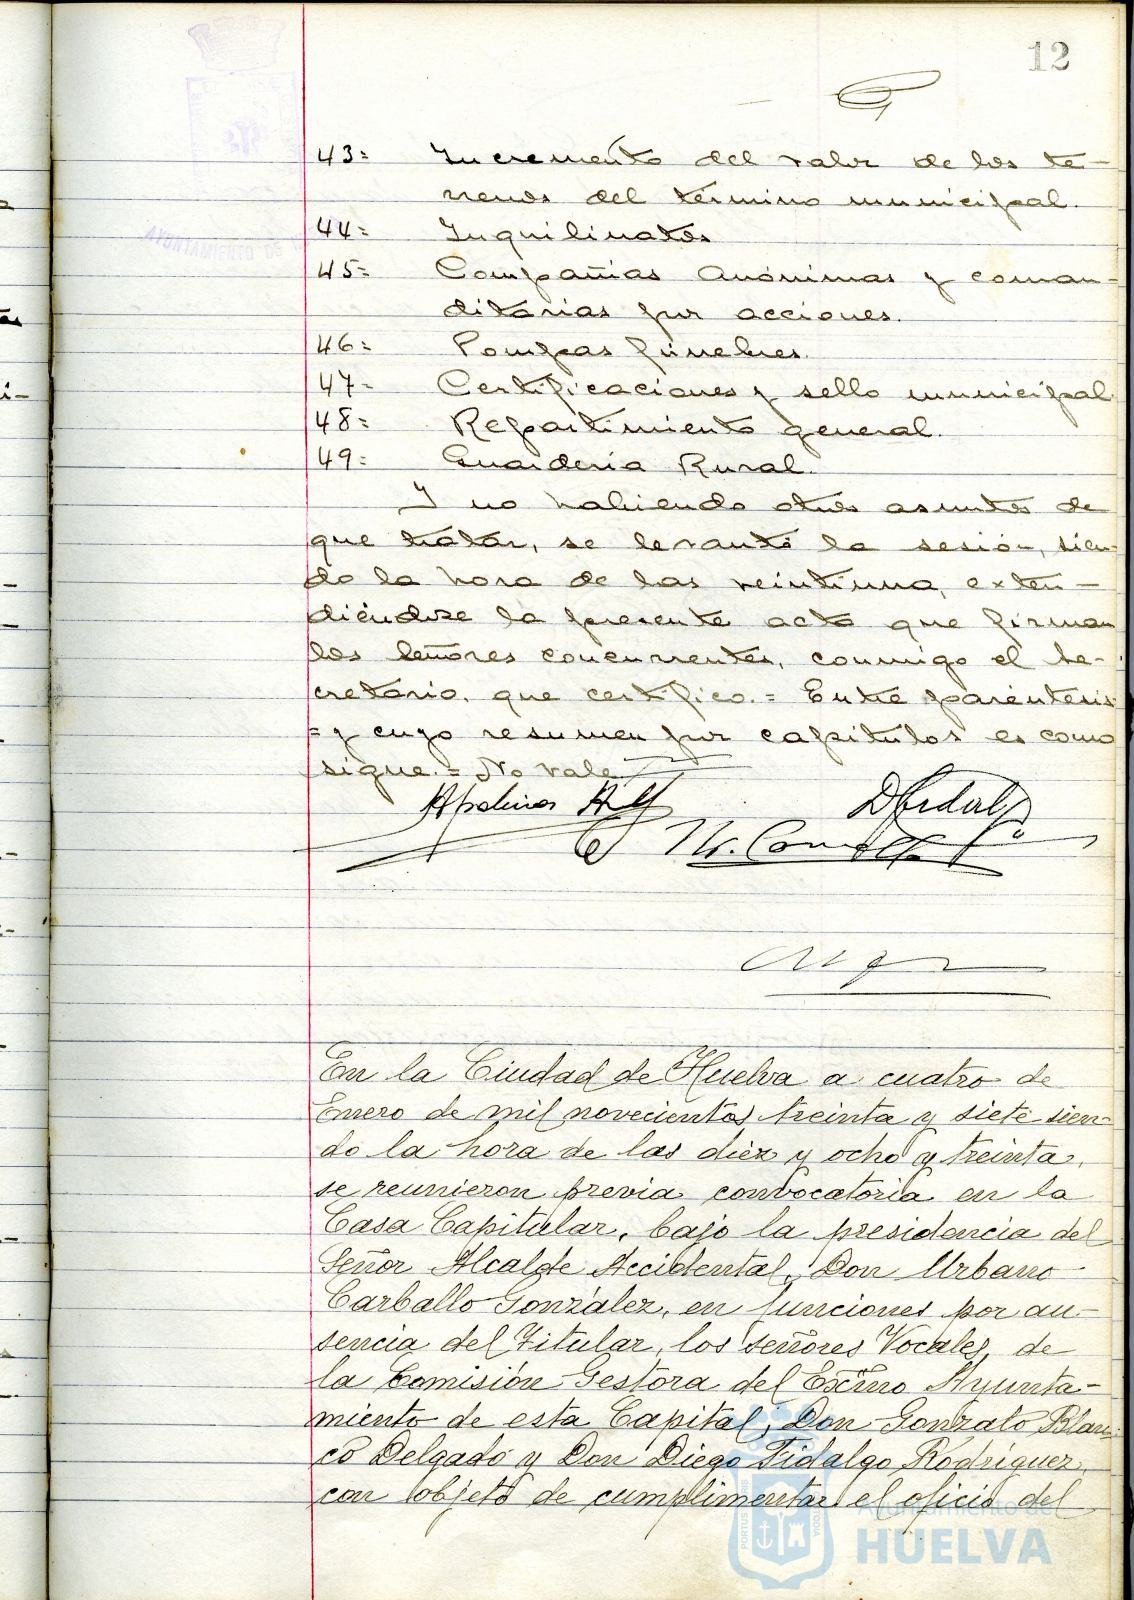 12
43= Incremento del valor de los te-
rrenos del término municipal.
44= Inquilinatos
45= Compañias Anónimas y coman-
ditarias por acciones.
46= Pompas fúnebres.
47= Certificaciones y sello municipal
48= Repartimiento general.
49= Guarderia Rural.
Y no habiendo otros asuntos de
que tratar, se levantó la sesión, sien-
do la hora de las veintiuna, exten-
diéndose la presente acta que firman
los señores concurrentes, conmigo el se-
cretario, que certifico.= Entre paréntesis
=y cuyo resumen por capitulos es como
sigue.= No vale
En la Ciudad de Huelva a cuatro de
Enero de mil novecientos treinta y siete sien-
do la hora de las diez y ocho y treinta,
se reunieron previa convocatoria en la
Casa Capitular, bajo la presidencia del
Señor Alcalde Accidental, Don Urbano
Carballo González, en funciones por au-
sencia del Titular, los señores Vocales de
la Comisión Gestora del Excmo Ayunta-
miento de esta Capital, Don Gonzalo Blan-
co Delgado y Don Diego Fidalgo Rodriguez,
con objeto de cumplimentar el oficio del
Ayuntamiento de
HUELVA